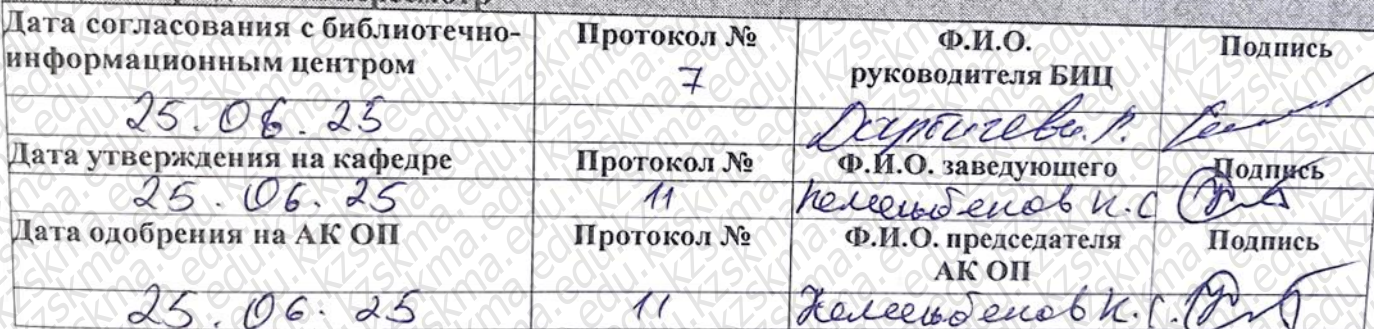 Дата согласования с библиотечно-информационным центром Протокол № 7 Ф.И.О. руководителя БИЦ Подпись
25.06.25
Дата утверждения на кафедре Протокол № Ф.И.О. заведующего Подпись
25.06.25 11 К.С
Дата одобрения на АК ОП Протокол № Ф.И.О. председателя АК ОП Подпись
25.06.25 11 К.С.